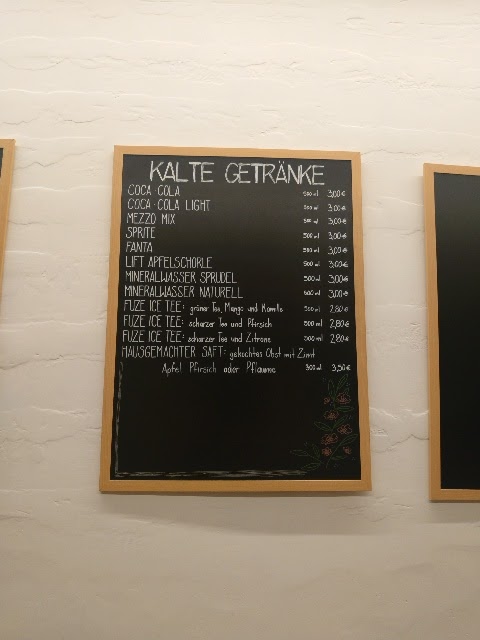 KALTE GETRÄNKE
COCA COLA 500 ml 3,00 €
COCA COLA LIGHT 500 ml 3,00 €
MEZZO MIX 500 ml 3,00 €
SPRITE 500 ml 3,00 €
FANTA 500 ml 3,00 €
LIFT APFELSCHORLE 500 ml 3,00 €
MINERALWASSER SPRUDEL 500 ml 3,00 €
MINERALWASSER NATURELL 500 ml 3,00 €
FUZE ICE TEE: grüner Tee, Mango und Kamille 500 ml 2,80 €
FUZE ICE TEE: schwarzer Tee und Pfirsich 500 ml 2,80 €
FUZE ICE TEE: schwarzer Tee und Zitrone 500 ml 2,80 €
HAUSGEMACHTER SAFT: gekochtes Obst mit Zimt
Apfel Pfirsich oder Pflaume 300 ml 3,50 €